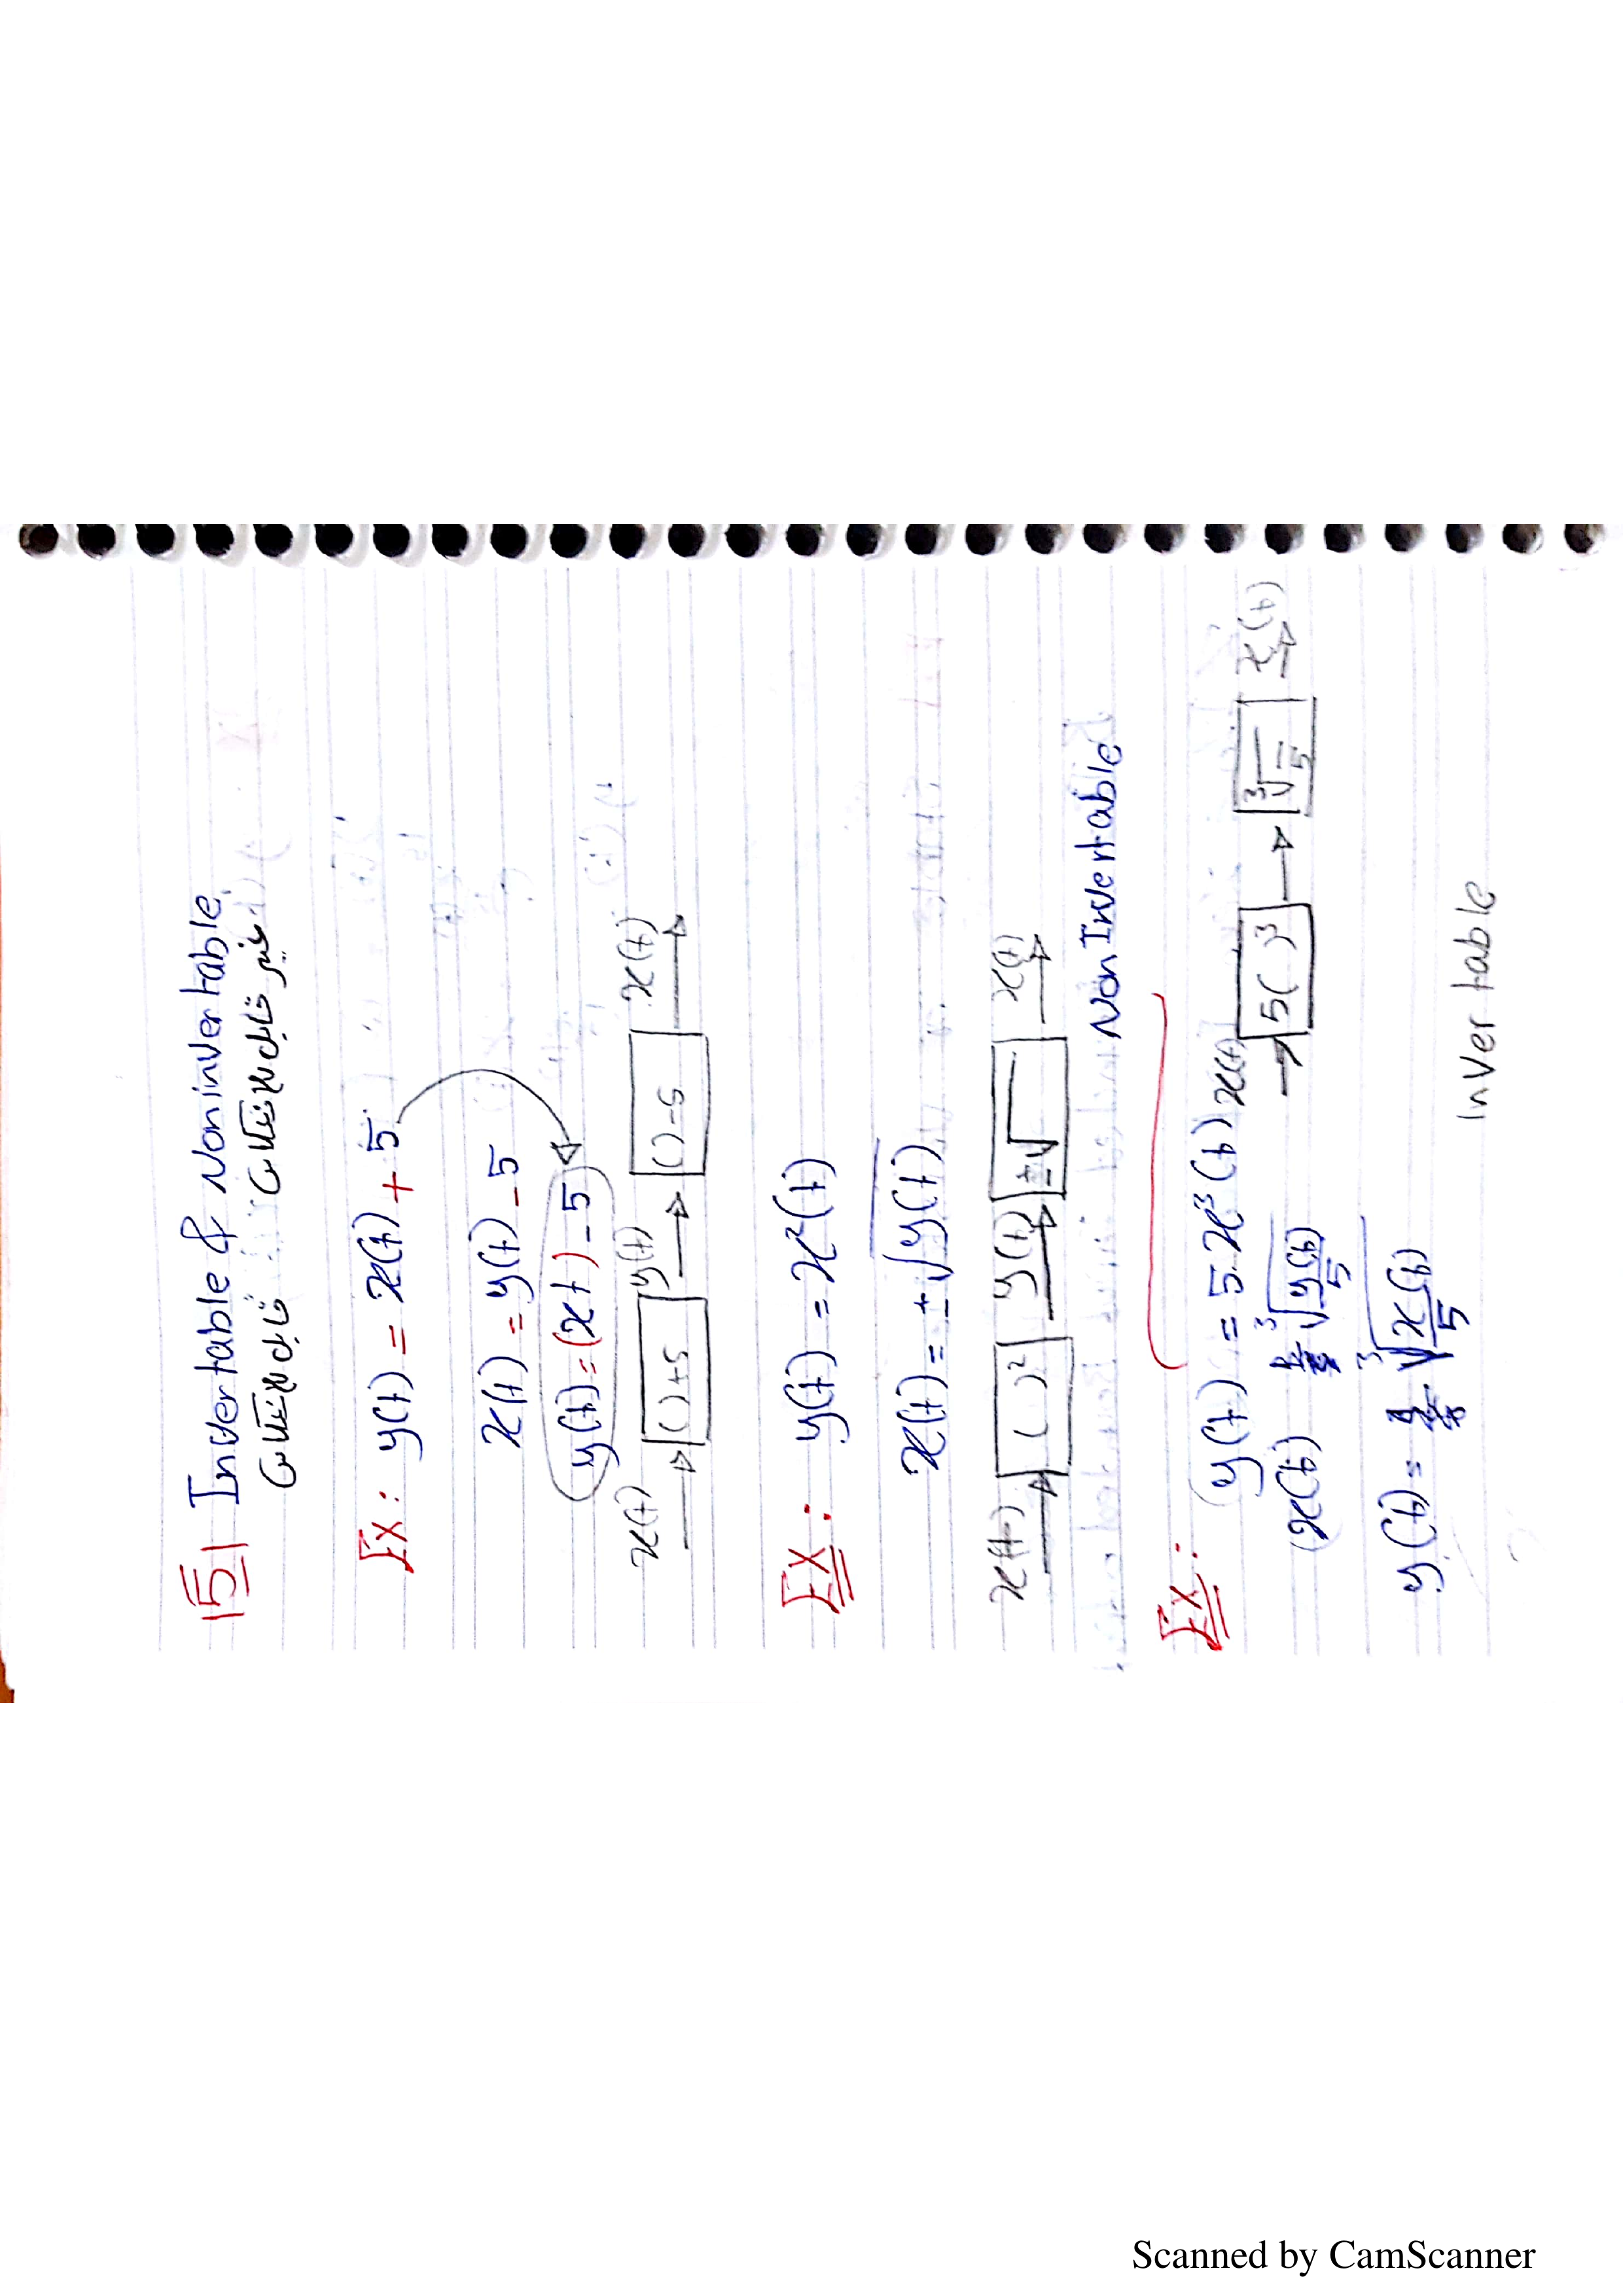 5 Invertable & Noninvertable
قابل للإنعكاس غير قابل للإنعكاس
EX: y(t) = x(t) + 5
x(t) = y(t) - 5
y(t) = (xt) - 5
x(t) ( )+5 y(t) ( )-5 x(t)
EX: y(t) = x²(t)
x(t) = ±√y(t)
x(t) ( )² y(t) ±√ x(t)
Non Invertable
EX: y(t) = 5 x³(t) x(t) 5( )³ ³√‾/5 x(t)
x(t) = ³√y(t)/5
y(t) = ³√x(t)/5
Invertable
Scanned by CamScanner